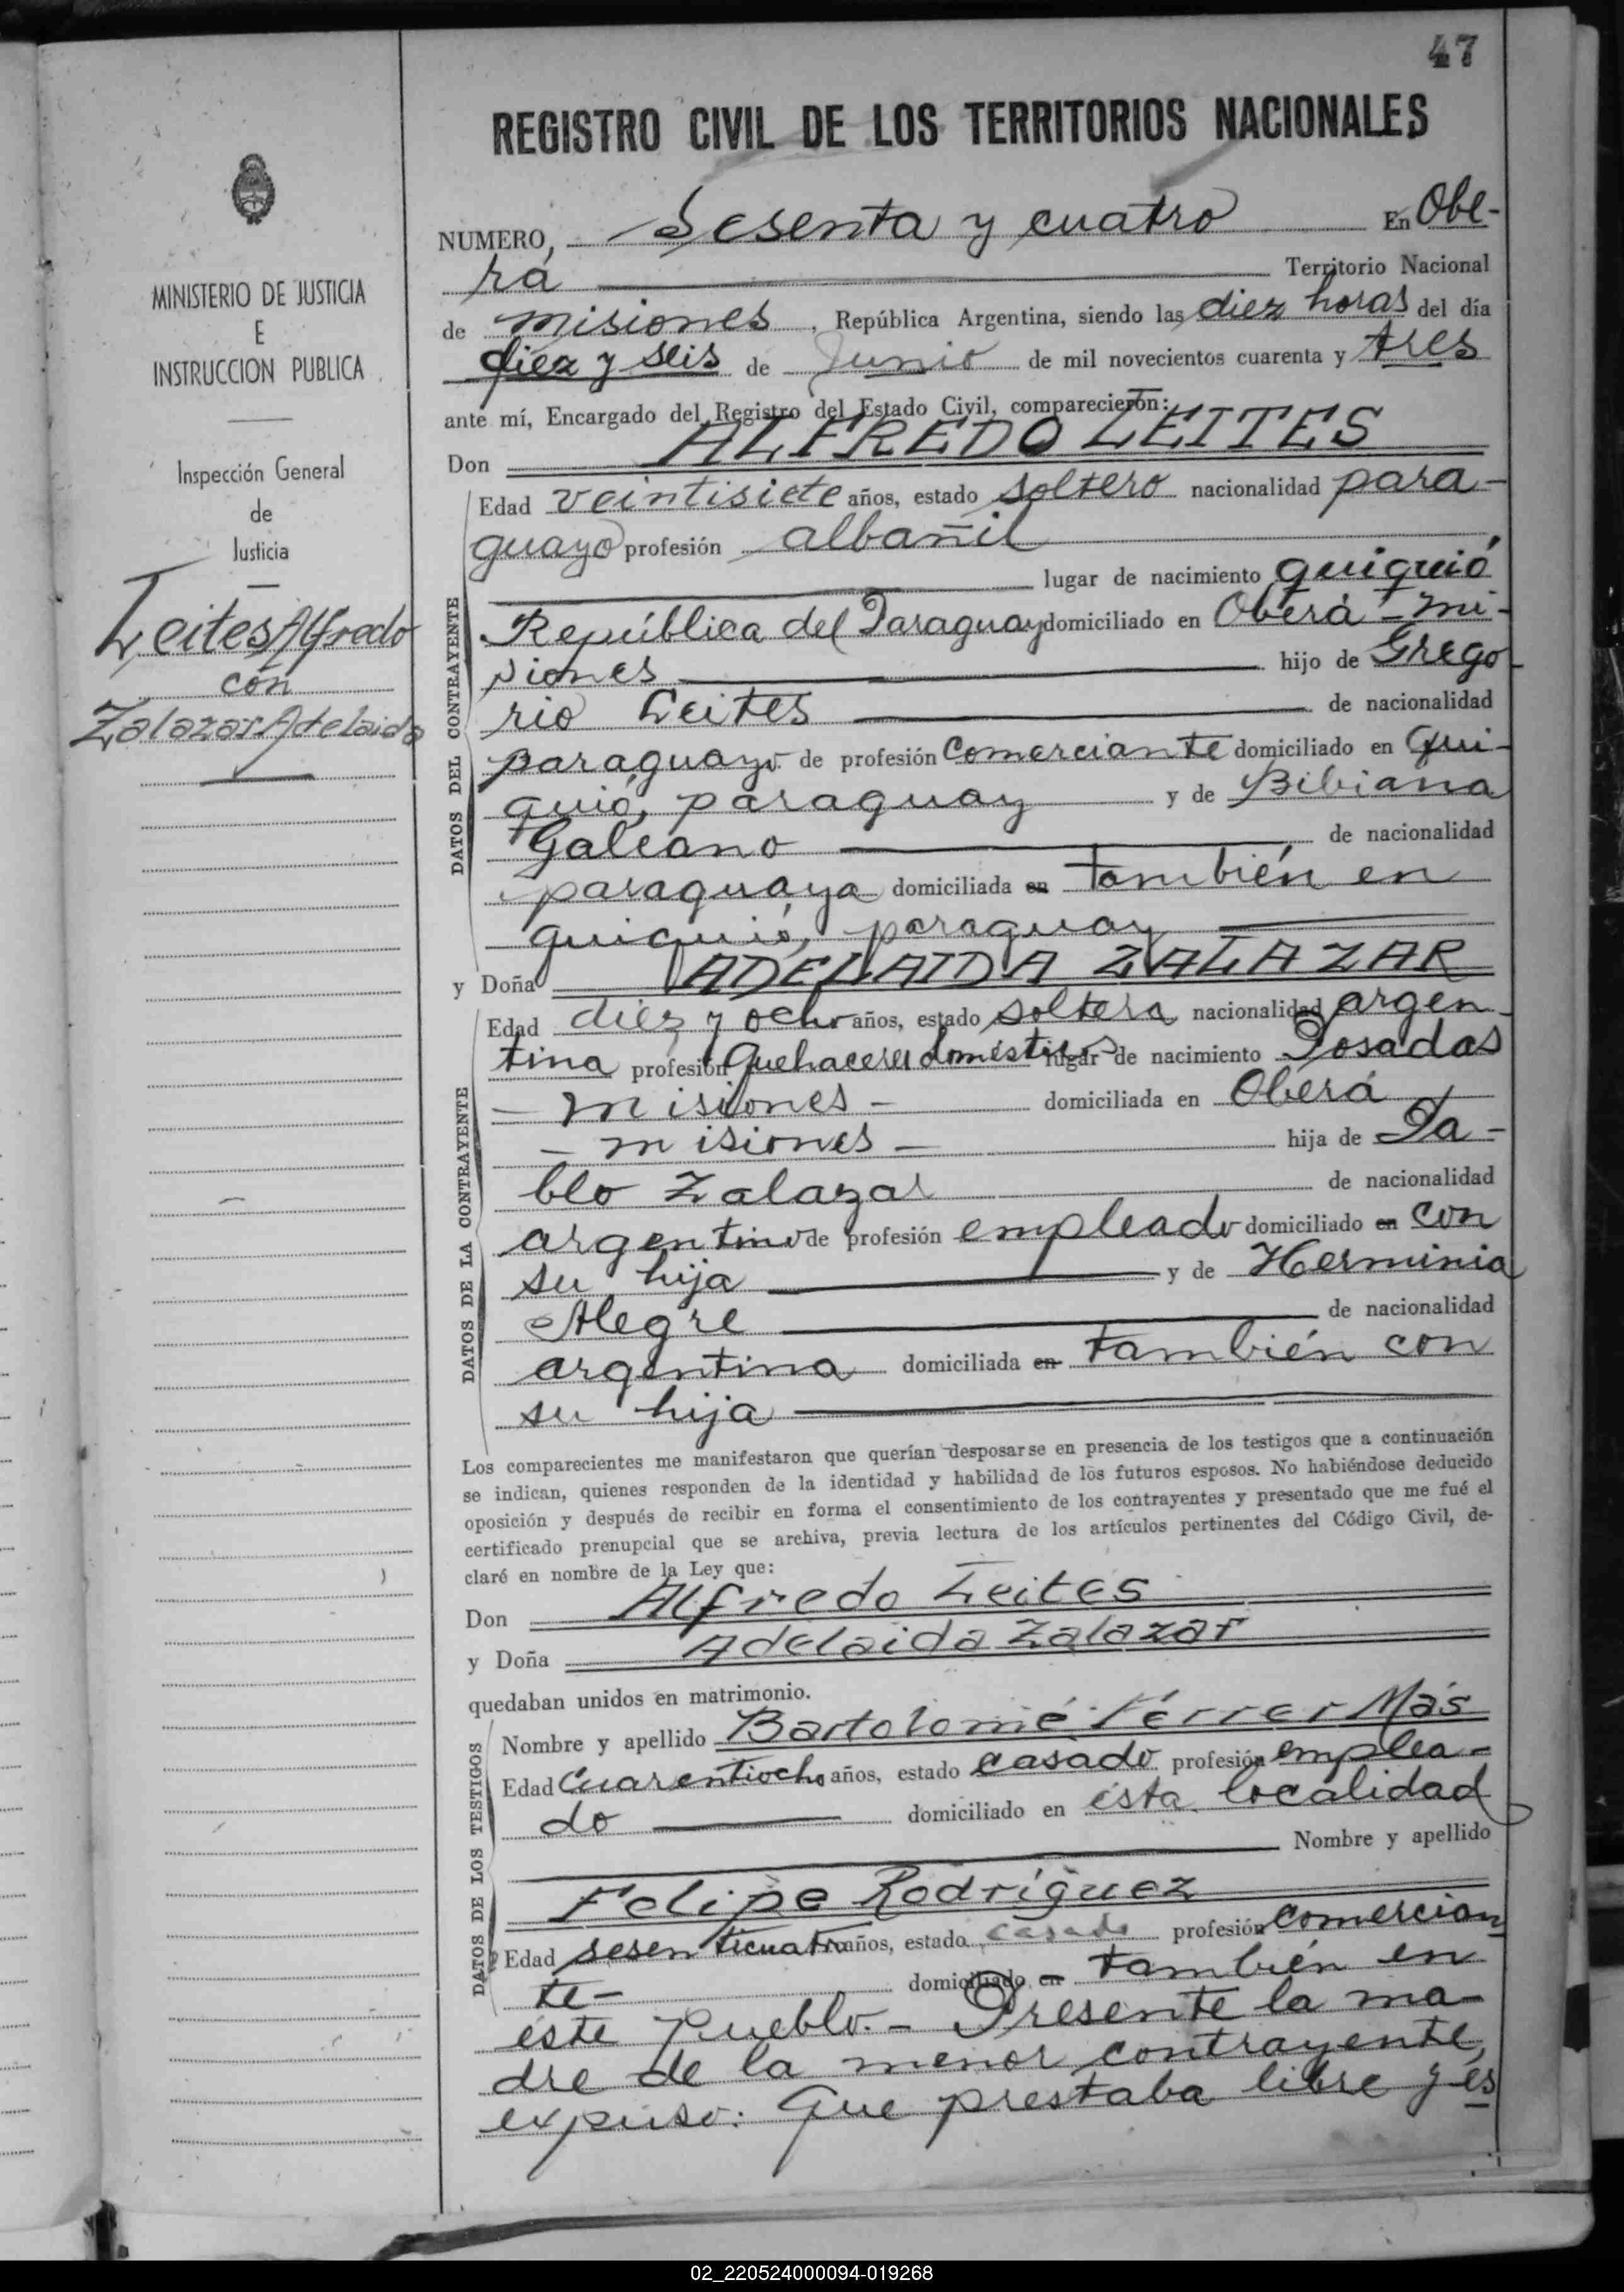 47
REGISTRO CIVIL DE LOS TERRITORIOS NACIONALES
MINISTERIO DE JUSTICIA
E
INSTRUCCION PUBLICA
Inspección General
de
Justicia
Leites Alfredo
con
Zalazar Adelaida
NUMERO, Sesenta y cuatro En Obe-
rá Territorio Nacional
de misiones, República Argentina, siendo las diez horas del día
diez y seis de Junio de mil novecientos cuarenta y tres
ante mí, Encargado del Registro del Estado Civil, comparecieron:
Don ALFREDO LEITES
DATOS DEL CONTRAYENTE
Edad veintisiete años, estado soltero nacionalidad para-
guayo profesión albañil
lugar de nacimiento quiquió
República del Paraguay domiciliado en Oberá - mi-
siones hijo de Grego
rio Leites de nacionalidad
paraguayo de profesión Comerciante domiciliado en Qui-
quió, paraguay y de Bibiana
Galeano de nacionalidad
paraguaya domiciliada en también en
quiquió, paraguay
y Doña ADELAIDA ZALAZAR
DATOS DE LA CONTRAYENTE
Edad diez y ocho años, estado soltera nacionalidad argen-
tina profesión Quehaceres domésticos lugar de nacimiento Posadas
- misiones - domiciliada en Oberá
- misiones - hija de Pa-
blo Zalazar de nacionalidad
argentino de profesión empleado domiciliado en con
su hija y de Herminia
Alegre de nacionalidad
argentina domiciliada en también con
su hija
Los comparecientes me manifestaron que querían desposarse en presencia de los testigos que a continuación
se indican, quienes responden de la identidad y habilidad de los futuros esposos. No habiéndose deducido
oposición y después de recibir en forma el consentimiento de los contrayentes y presentado que me fué el
certificado prenupcial que se archiva, previa lectura de los artículos pertinentes del Código Civil, de-
claré en nombre de la Ley que:
Don Alfredo Leites
y Doña Adelaida Zalazar
quedaban unidos en matrimonio.
DATOS DE LOS TESTIGOS
Nombre y apellido Bartolomé Ferrer Más
Edad Cuarentiocho años, estado casado profesión emplea-
do domiciliado en ésta localidad
Nombre y apellido
Felipe Rodríguez
Edad sesenticuatro años, estado casado profesión comercian
te- domiciliado en también en
éste Pueblo.- Presente la ma-
dre de la menor contrayente,
expuso: Que prestaba libre y es
02_220524000094-019268